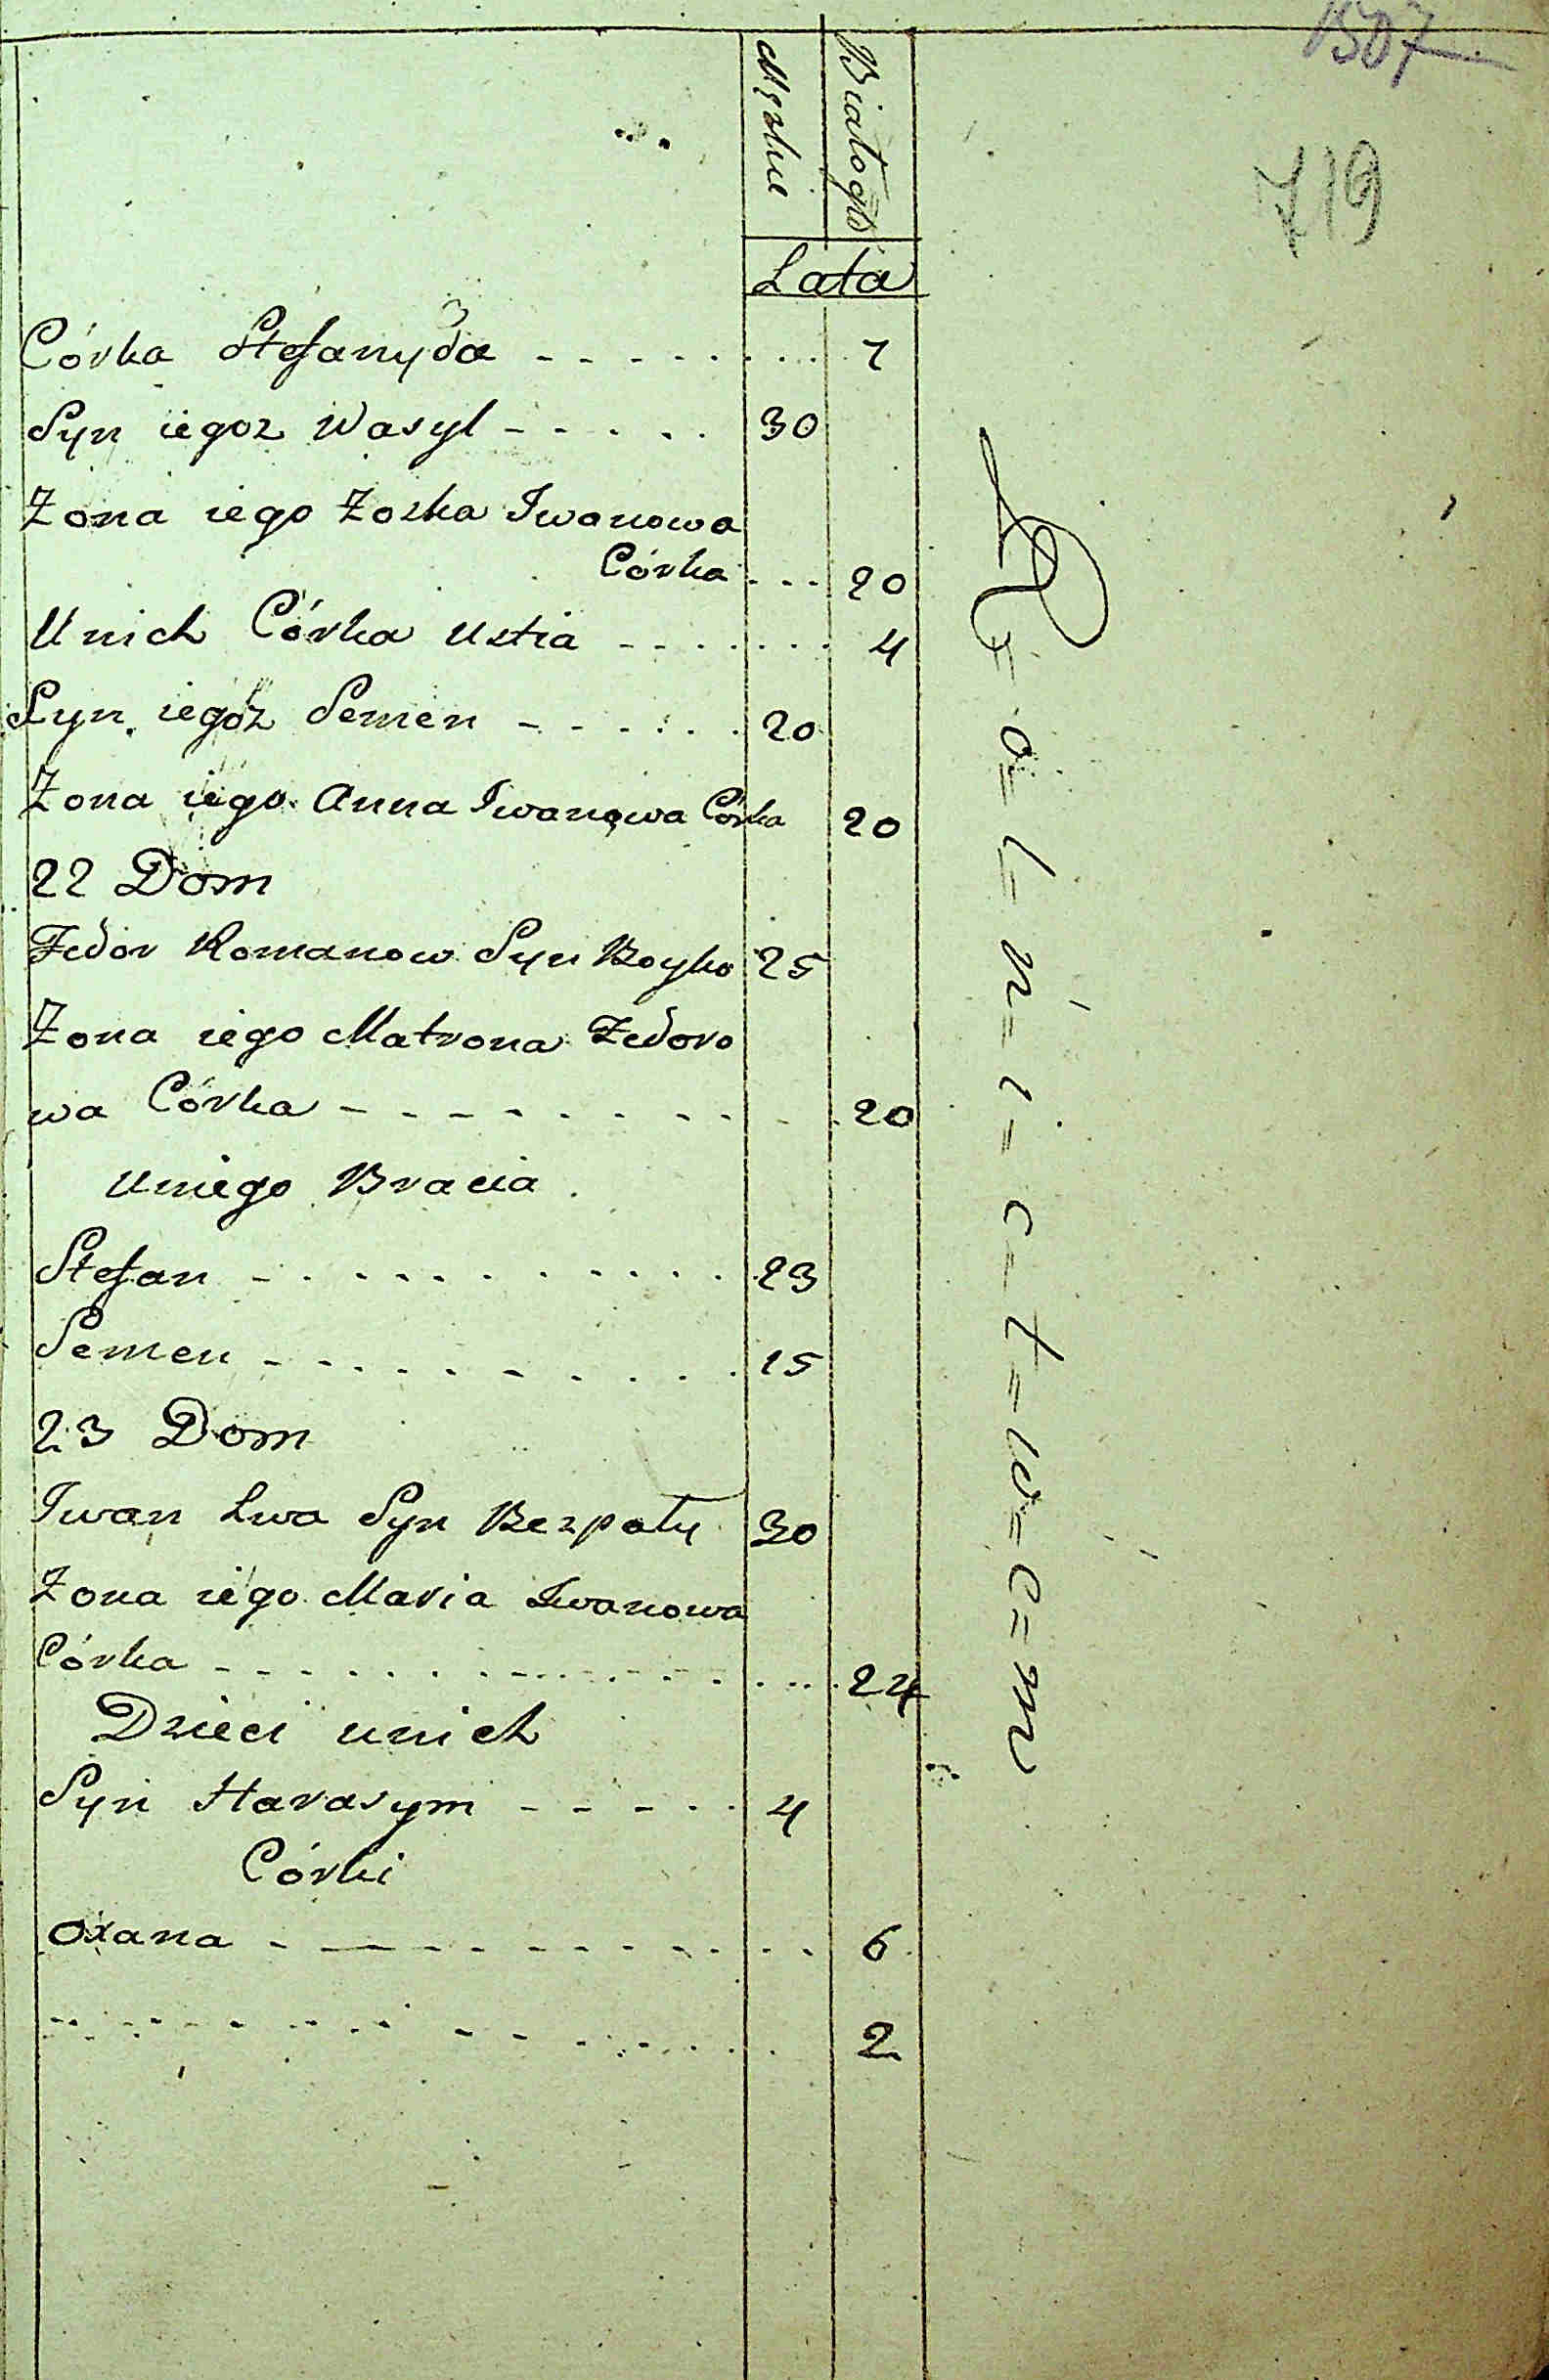 1507
719
Męzkie
Białogło
Lata
Córka Stefanyda - - - - - - - 7
Syn iegoz Wasyl - - - - - 30
Zona iego Zoska Iwanowa
Córka - - - 20
Unich Córka Ustia - - - - - - 4
Syn iegoz Semen - - - - - 20
Zona iego Anna Iwanowa Córka 20
22 Dom
Fedor Romanow Syn Boyko 25
Zona iego Matrona Fedoro
wa Córka - - - - - - - - 20
Uniego Bracia
Stefan - - - - - - - - - 23
Semen - - - - - - - - - 15
23 Dom
Iwan Lwa Syn Bezpały 30
Zona iego Maria Iwanowa
Córka - - - - - - - - - 24
Dzieci unich
Syn Harasym - - - - - 4
Córki
Oxana - - - - - - - - - 6
- - - - - - - - - 2
R = o = l = n = i = c = t = w = e = m